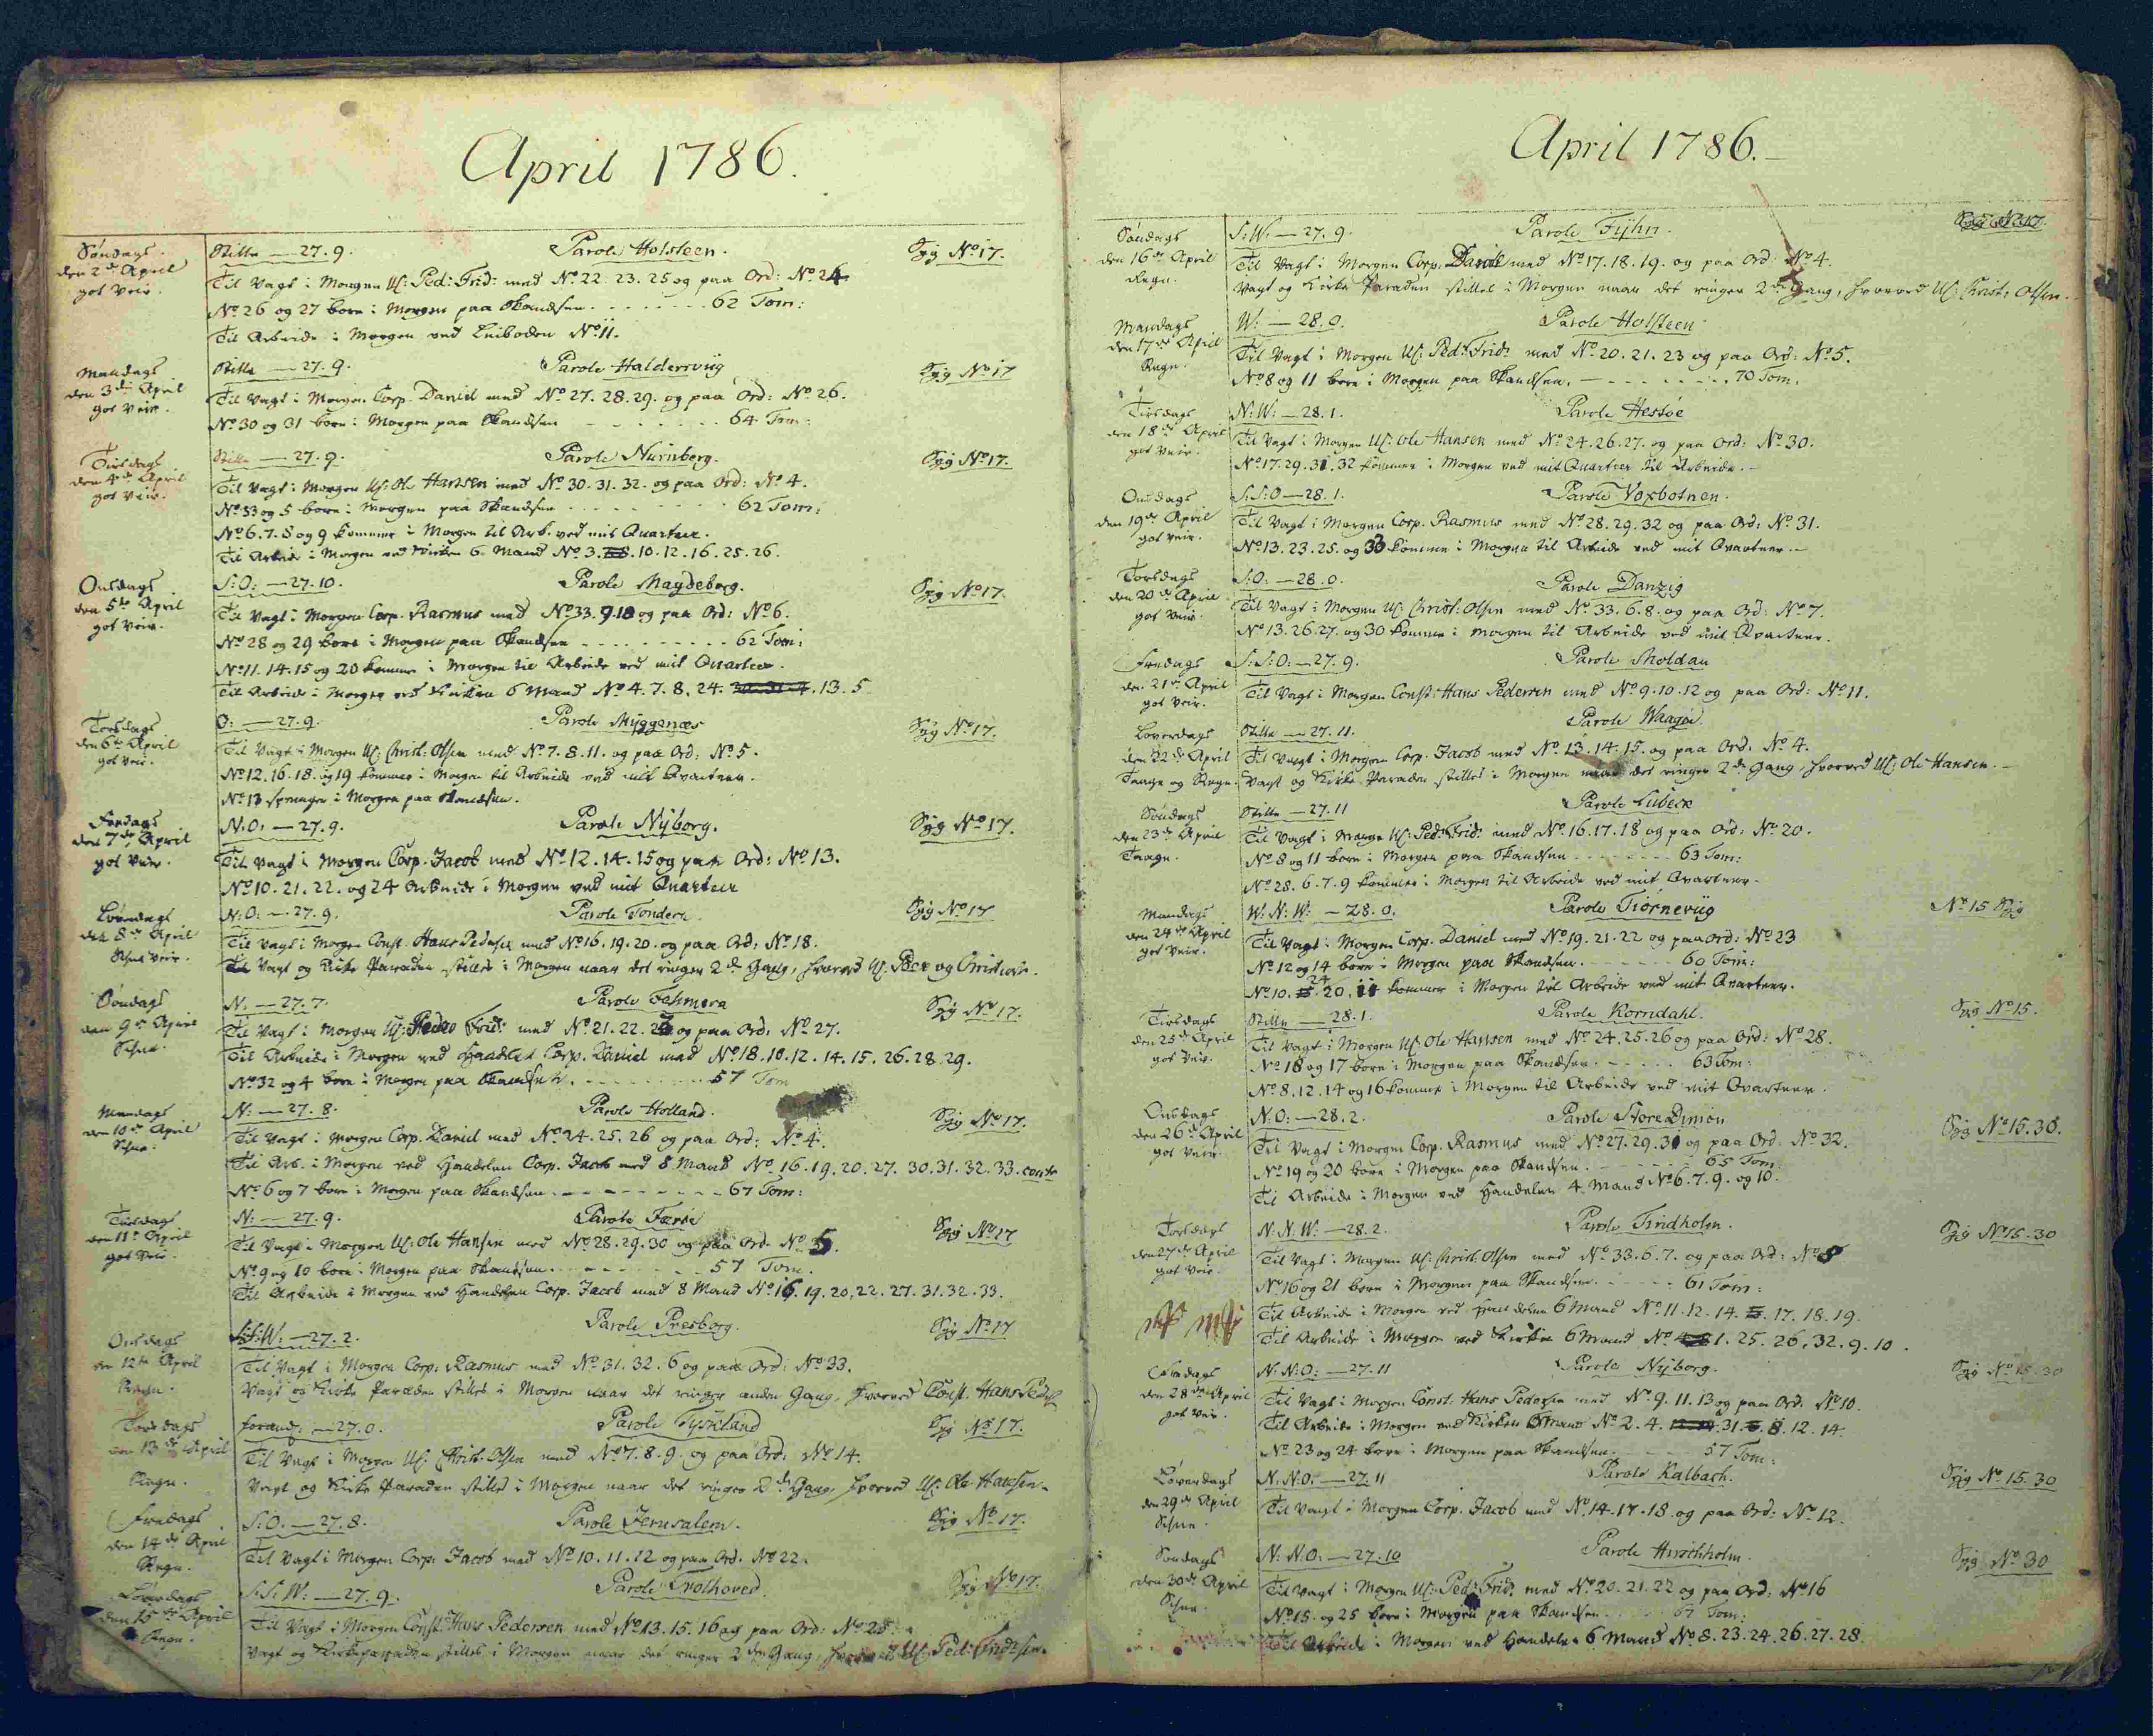 April 1786.
Søndags Stille — 27. 9. Parole Holsteen. Syg No 17.
den 2de April Til Vagt i Morgen U: Ped: Frid: med No 22. 23. 25 og paa Ord: No 24
got Veir. No 26 og 27 bore i Morgen paa Skandsen - - - - - - - 62 Tom:
Til Arbeide i Morgen ved Leiboden No 11.
Mandags Stille — 27. 9. Parole Haldersviig Syg No 17
den 3die April Til Vagt i Morgen Corp. Daniel med No 27. 28. 29. og paa Ord: No 26.
got Veir. No 30 og 31 bore i Morgen paa Skandsen - - - - - - - 64 Tom:
Tirsdags Stille — 27. 9. Parole Nurnberg. Syg No 17.
den 4de April Til Vagt i Morgen U: Ole Hansen med No 30. 31. 32. og paa Ord: No 4.
got Veir. No 33 og 5 bore i Morgen paa Skandsen - - - - - - - 62 Tom:
No 6. 7. 8 og 9 kommer i Morgen til Arb. ved mit Quarteer.
Til Arbeide i Morgen ved Kirken 6. Mand No 3. 10. 12. 16. 25. 26.
Onsdags S: O: — 27. 10. Parole Magdeborg. Syg No 17.
den 5te April Til Vagt i Morgen Corp. Rasmus med No 33. 9. 18 og paa Ord: No 6.
got Veir. No 28 og 29 bore i Morgen paa Skandsen - - - - - - - 62 Tom:
No 11. 14. 15 og 20 kommer i Morgen til Arbeide ved mit Quarteer.
Til Arbeide i Morgen ved Kirken 6 Mand No 4. 7. 8. 24. 13. 5
Torsdags O: — 27. 9. Parole Myggenæs Syg No 17.
den 6te April Til Vagt i Morgen U: Christ: Olsen med No 7. 8. 11. og paa Ord: No 5.
got Veir. No 12. 16. 18. og 19 kommer i Morgen til Arbeide ved mit Qvarteer.
No 13 i Morgen paa Skandsen.
Fredags N: O: — 27. 9. Parole Nÿborg. Syg No 17.
den 7de April Til Vagt i Morgen Corp. Jacob med No 12. 14. 15 og paa Ord: No 13.
got Veir. No 10. 21. 22. og 24 Arbeide i Morgen ved mit Quarteer
Løverdags N: O: — 27. 9. Parole Tondern. Syg No 17
den 8de April Til Vagt i Morgen Const. Hans Pedersen med No 16. 19. 20. og paa Ord: No 18.
Vagt og Kirke Paraden stilles i Morgen naar det ringer 2de Gang, hvorved U:
Søndags N. — 27. 7. Parole Fehmern Syg No 17.
den 9de April Til Vagt i Morgen U: Peder Frid: med No 21. 22. 23 og paa Ord: No 27.
Schne. Til Arbeide i Morgen ved Handlen Corp. Daniel med No 18. 10. 12. 14. 15. 26. 28. 29.
No 32 og 4 bore i Morgen paa Skandsen. - - - - - - - 57 Tom
Mandags N: — 27. 8. Parole Holland. Syg No 17.
den 10de April Til Vagt i Morgen Corp. Daniel med No 24. 25. 26 og paa Ord: No 4.
Schne. Til Arb. i Morgen ved Handelen Corp. Jacob med 8 Mand No 16. 19. 20. 27. 30. 31. 32. 33.
No 6 og 7 bore i Morgen paa Skandsen - - - - - - - 67 Tom:
Tirsdags N: — 27. 9. Parole Færøe Syg No 17
den 11te April Til Vagt i Morgen U: Ole Hansen med No 28. 29. 30 og paa Ord. No 5.
got Veir. No 9 og 10 bore i Morgen paa Skandsen - - - - - - - 57 Tom.
Til Arbeide i Morgen ved Handelen Corp. Jacob med 8 Mand No 16. 19. 20. 22. 27. 31. 32. 33.
Onsdags S: S: W: — 27. 2. Parole Presborg. Syg No 17
den 12te April Til Vagt i Morgen Corp. Rasmus med No 31. 32. 6 og paa Ord: No 33.
Regn. Vagt og Kirke Paraden stilles i Morgen naar det ringer anden Gang, hvorved Const. Hans
Torsdags 27. 0. Parole Tyskland Syg No 17.
den 13de April Til Vagt i Morgen U: Christ. Olsen med No 7. 8. 9. og paa Ord: No 14.
Regn. Vagt og Kirke Paraden stilles i Morgen naar det ringer 2de Gang, hvorved U: Ole Hansen.
Fredags S: O. — 27. 8. Parole Jerusalem. Syg No 17.
den 14de April Til Vagt i Morgen Corp. Jacob med No 10. 11. 12 og paa Ord. No 22.
Regn.
Løverdags S: S: W: — 27. 9. Parole Trolhoved. Syg No 17.
den 15de April Til Vagt i Morgen Const: Hans Pedersen med No 13. 15. 16 og paa Ord: No 25.
Regn. Vagt og Kirkeparaden stilles i Morgen naar det ringer 2den Gang, hvorved U: Ped: Fridrichsen.
April 1786.
Søndags S: W. — 27. 9. Parole Fÿhn.
den 16de April Til Vagt i Morgen Corp. Daniel med No 17. 18. 19. og paa Ord: No 4.
Regn. Vagt og Kirke Paraden stilles i Morgen naar det ringer 2de Gang, hvorved U: Christ: Olsen.
Mandags W: — 28. 0. Parole Holsteen
den 17de April Til Vagt i Morgen U: Ped: Frid: med No 20. 21. 23 og paa Ord: No 5.
Regn. No 8 og 11 bore i Morgen paa Skandsen. - - - - - - - 70 Tom.
Tirsdags N: W: — 28. 1. Parole Hestøe
den 18de April Til Vagt i Morgen U: Ole Hansen med No 24. 26. 27. og paa Ord: No 30.
got Veir. No 17. 29. 31. 32 kommer i Morgen ved mit Quarteer til Arbeide.
Onsdags S: S: O — 28. 1. Parole Voxbotnen.
den 19de April Til Vagt i Morgen Corp. Rasmus med No 28. 29. 32 og paa Ord: No 31.
got Veir. No 13. 23. 25. og 33 kommer i Morgen til Arbeide ved mit Qvarteer.
Torsdags S: O: — 28. 0. Parole Danzig
den 20de April Til Vagt i Morgen U: Christ. Olsen med No 33. 6. 8. og paa Ord: No 7.
got Veir. No 13. 26. 27. og 30 kommer i Morgen til Arbeide ved mit Qvarteer.
Fredags S: S: O: — 27. 9. Parole Moldau
den 21de April Til Vagt i Morgen Const: Hans Pedersen med No 9. 10. 12 og paa Ord: No 11.
got Veir.
Løverdags Stille — 27. 11. Parole Waagøe.
den 22de April Til Vagt i Morgen Corp. Jacob med No 13. 14. 15. og paa Ord: No 4.
Taage og Regn. Vagt og Kirke Paraden stilles i Morgen naar det ringer 2de Gang, hvorved U: Ole Hansen.
Søndags Stille — 27. 11 Parole Lübeck
den 23de April Til Vagt i Morgen U: Ped: Frid: med No 16. 17. 18 og paa Ord: No 20.
Taage. No 8 og 11 bore i Morgen paa Skandsen - - - - - - - 63 Tom:
No 28. 6. 7. 9 kommer i Morgen til Arbeide ved mit Qvarteer.
Mandags W: N: W: — 28. 0. Parole Tiørneviig No 15 Syg
den 24de April Til Vagt i Morgen Corp. Daniel med No 19. 21. 22 og paa Ord: No 23
got Veir. No 12 og 14 bore i Morgen paa Skandsen. - - - - - 60 Tom:
No 10. 24. 20. 11 kommer i Morgen til Arbeide ved mit Qvarteer.
Tirsdags Stille — 28. 1. Parole Korndahl. Syg No 15.
den 25de April Til Vagt i Morgen U: Ole Hansen med No 24. 25. 26 og paa Ord: No 28.
got Veir. No 18 og 17 bore i Morgen paa Skandsen. - - - - - 63 Tom:
No 8. 12. 14 og 16 kommer i Morgen til Arbeide ved mit Qvarteer.
Onsdags N: O: — 28. 2. Parole Store Dimon Syg No 15. 30.
den 26de April Til Vagt i Morgen Corp. Rasmus med No 27. 29. 31 og paa Ord. No 32.
got Veir. No 19 og 20 bore i Morgen paa Skandsen. - - - - - 65 Tom:
Til Arbeide i Morgen ved Handelen 4. Mand No 6. 7. 9. og 10.
Torsdags N. N. W: — 28. 2. Parole Tindholm. Syg No 15. 30
den 27de April Til Vagt i Morgen U: Christ. Olsen med No 33. 6. 7. og paa Ord: No 8
got Veir. No 16 og 21 bore i Morgen paa Skandsen. - - - - - 61 Tom:
Til Arbeide i Morgen ved Handelen 6 Mand No 11. 12. 14. 17. 18. 19.
Til Arbeide i Morgen ved Kirken 6 Mand No 1. 25. 26. 32. 9. 10.
Fredags N: N: O: — 27. 11 Parole Nÿborg. Syg No 15. 30
den 28de April Til Vagt i Morgen Const. Hans Pedersen med No 9. 11. 13 og paa Ord. No 10.
got Veir. Til Arbeide i Morgen ved Kirken 6 Mand No 2. 4. 31. 8. 12. 14.
No 23 og 24 bore i Morgen paa Skandsen. - - - - 57 Tom:
Løverdags N: N: O: — 27. 11 Parole Kalbach. Syg No 15. 30
den 29de April Til Vagt i Morgen Corp. Jacob med No 14. 17. 18. og paa Ord: No 12.
Schne.
Søndags N: N: O: — 27. 10 Parole Hirschholm. Syg No 30
den 30de April Til Vagt i Morgen U: Ped: Frid: med No 20. 21. 22 og paa Ord: No 16
Schne. No 15. og 25 bore i Morgen paa Skandsen. - - - 67 Tom:
Til Arbeide i Morgen ved Handelen 6 Mand No 8. 23. 24. 26. 27. 28.